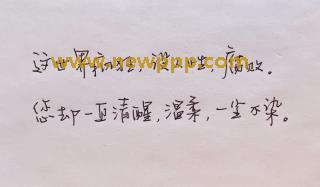 这世界疯狂，没人性，腐败。
www.newapp.com
您却一直清醒，温柔，一尘不染。